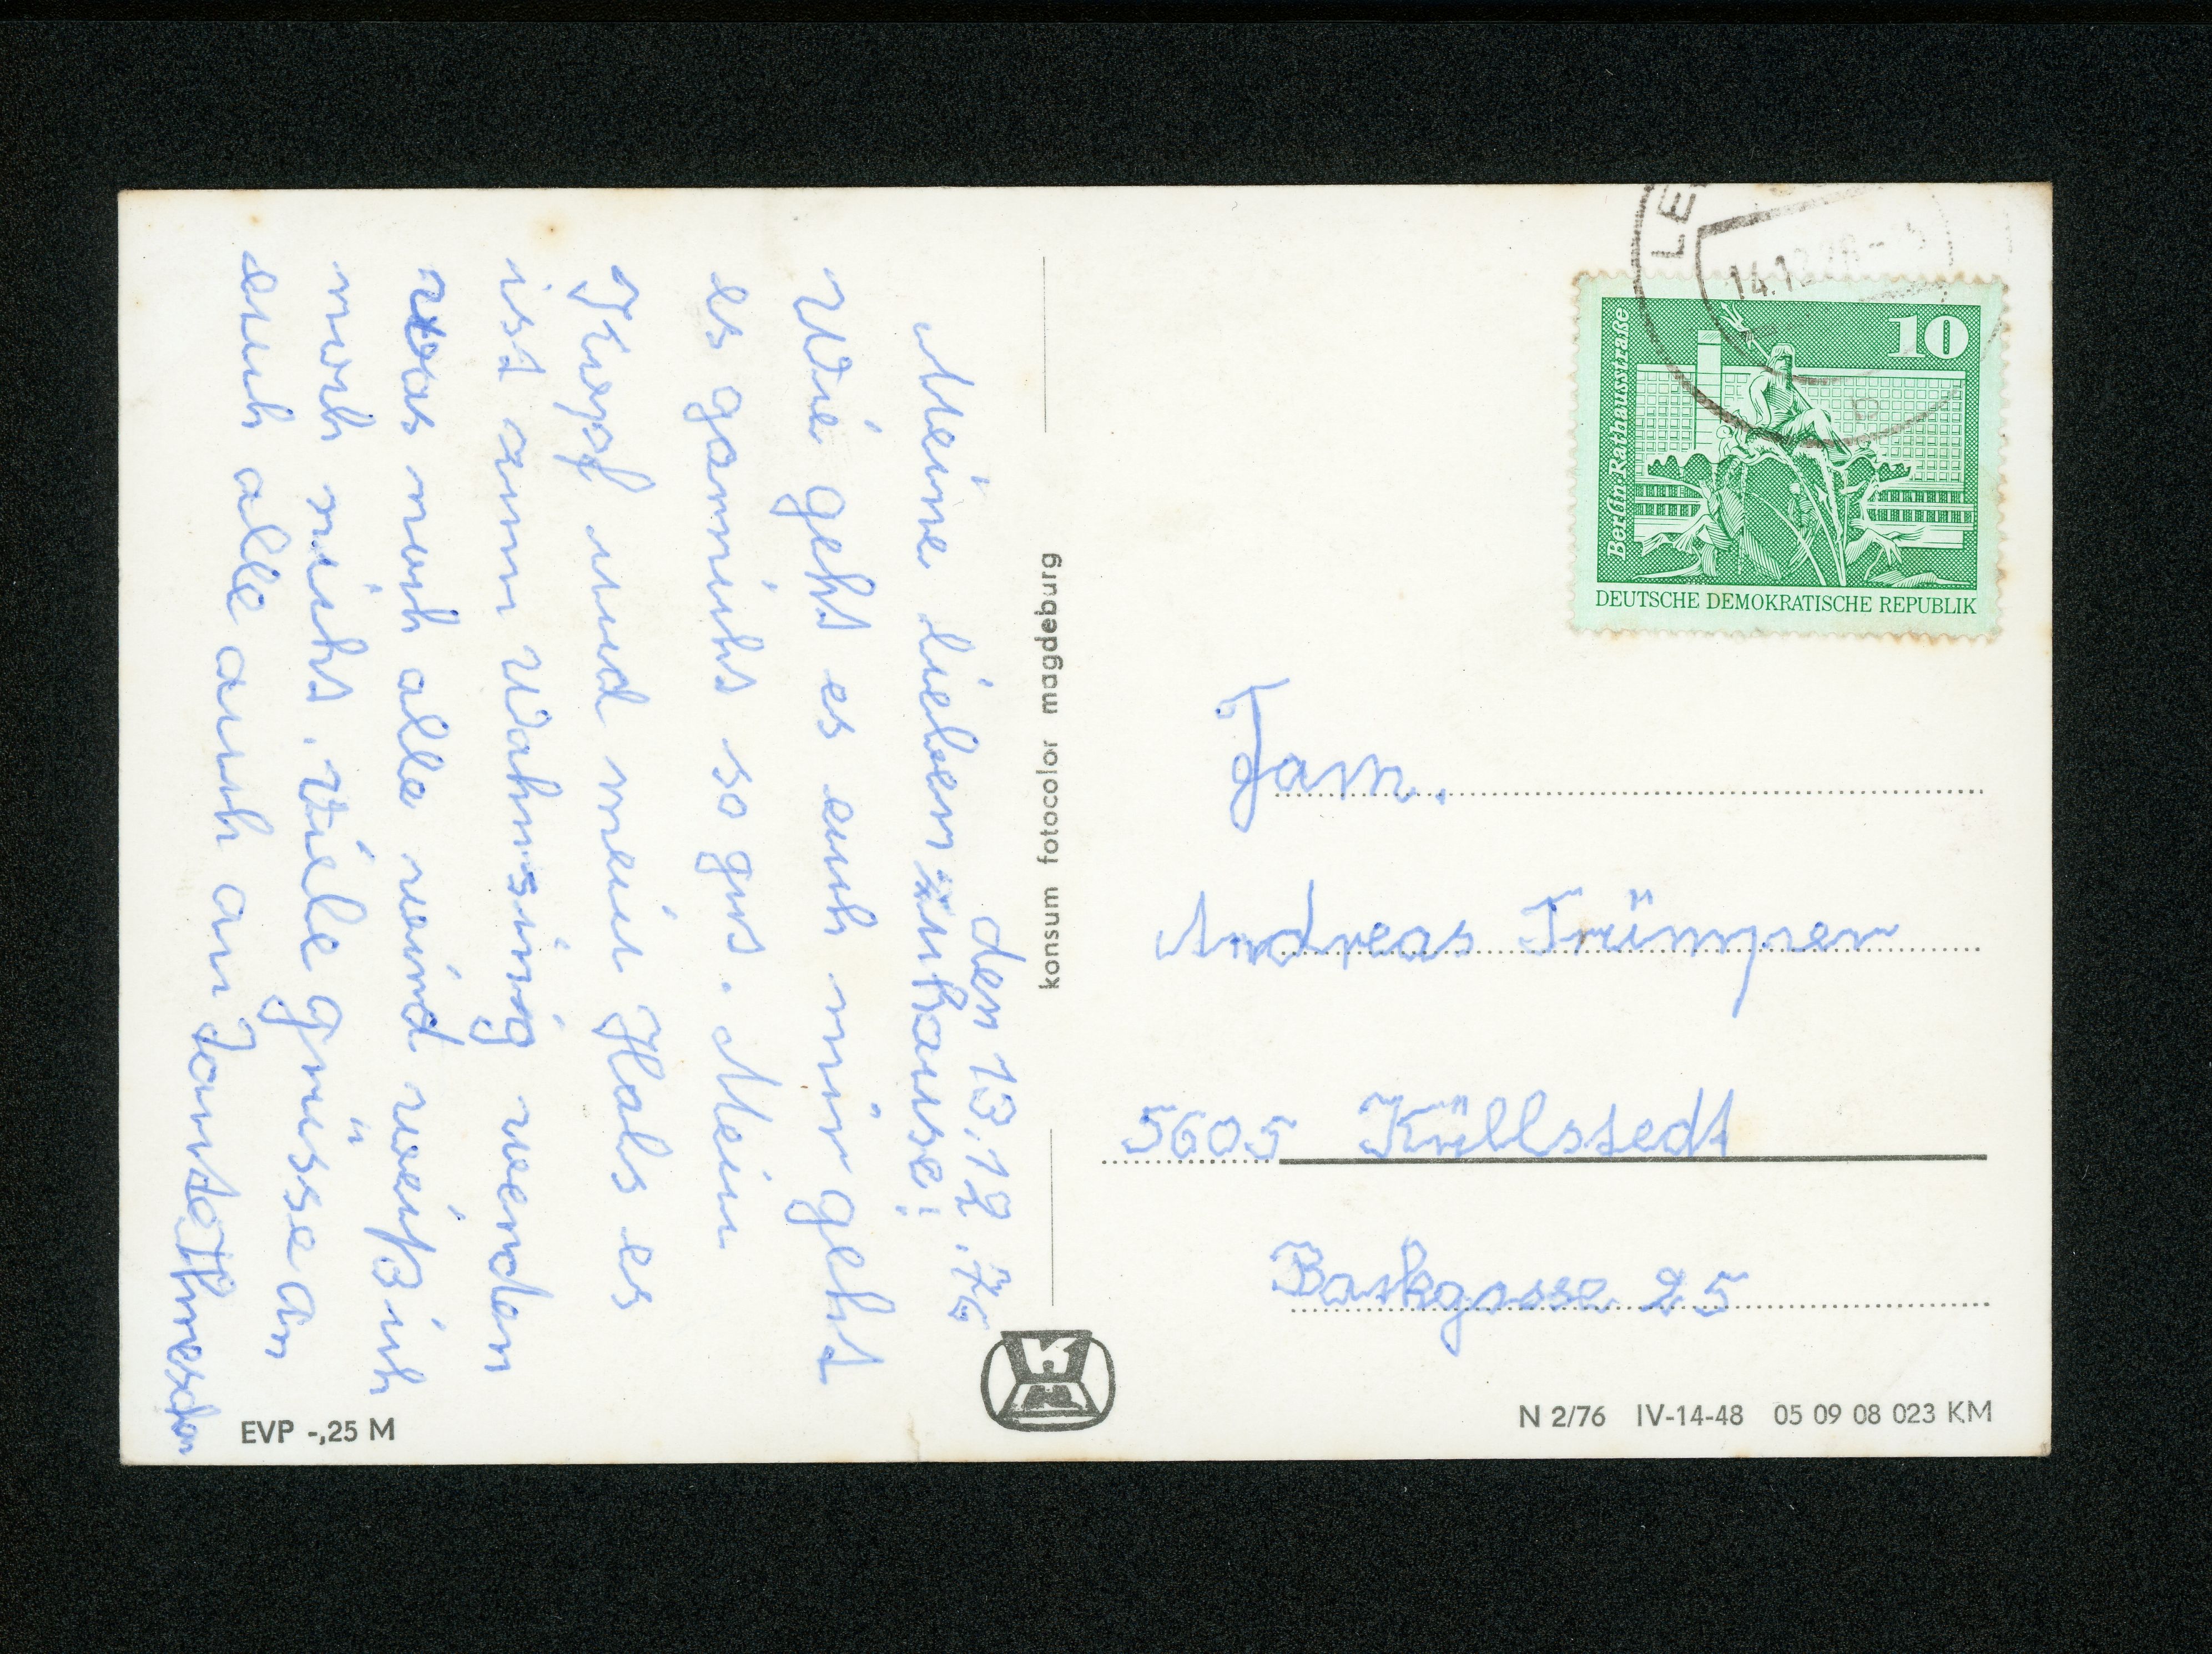 den 13.12.76
Meine lieben zuhause!
Wie geht es euch mir geht
es garnicht so gut. Mein
Kopf und mein Hals es
ist zum Wahnsinig werden
was noch alle wird weiß ich
noch nicht. Viele grüsse an
euch alle auch an Tante
konsum fotocolor magdeburg
EVP -,25 M
LE
14.12.76-
10
Berlin, Rathausstraße
DEUTSCHE DEMOKRATISCHE REPUBLIK
Fam.
Andreas Trümper
5605 Küllstedt
Bachgasse 25
N 2/76 IV-14-48 05 09 08 023 KM